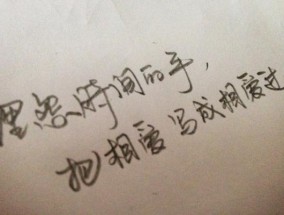 埋怨时间的手，
把相爱写成相爱过